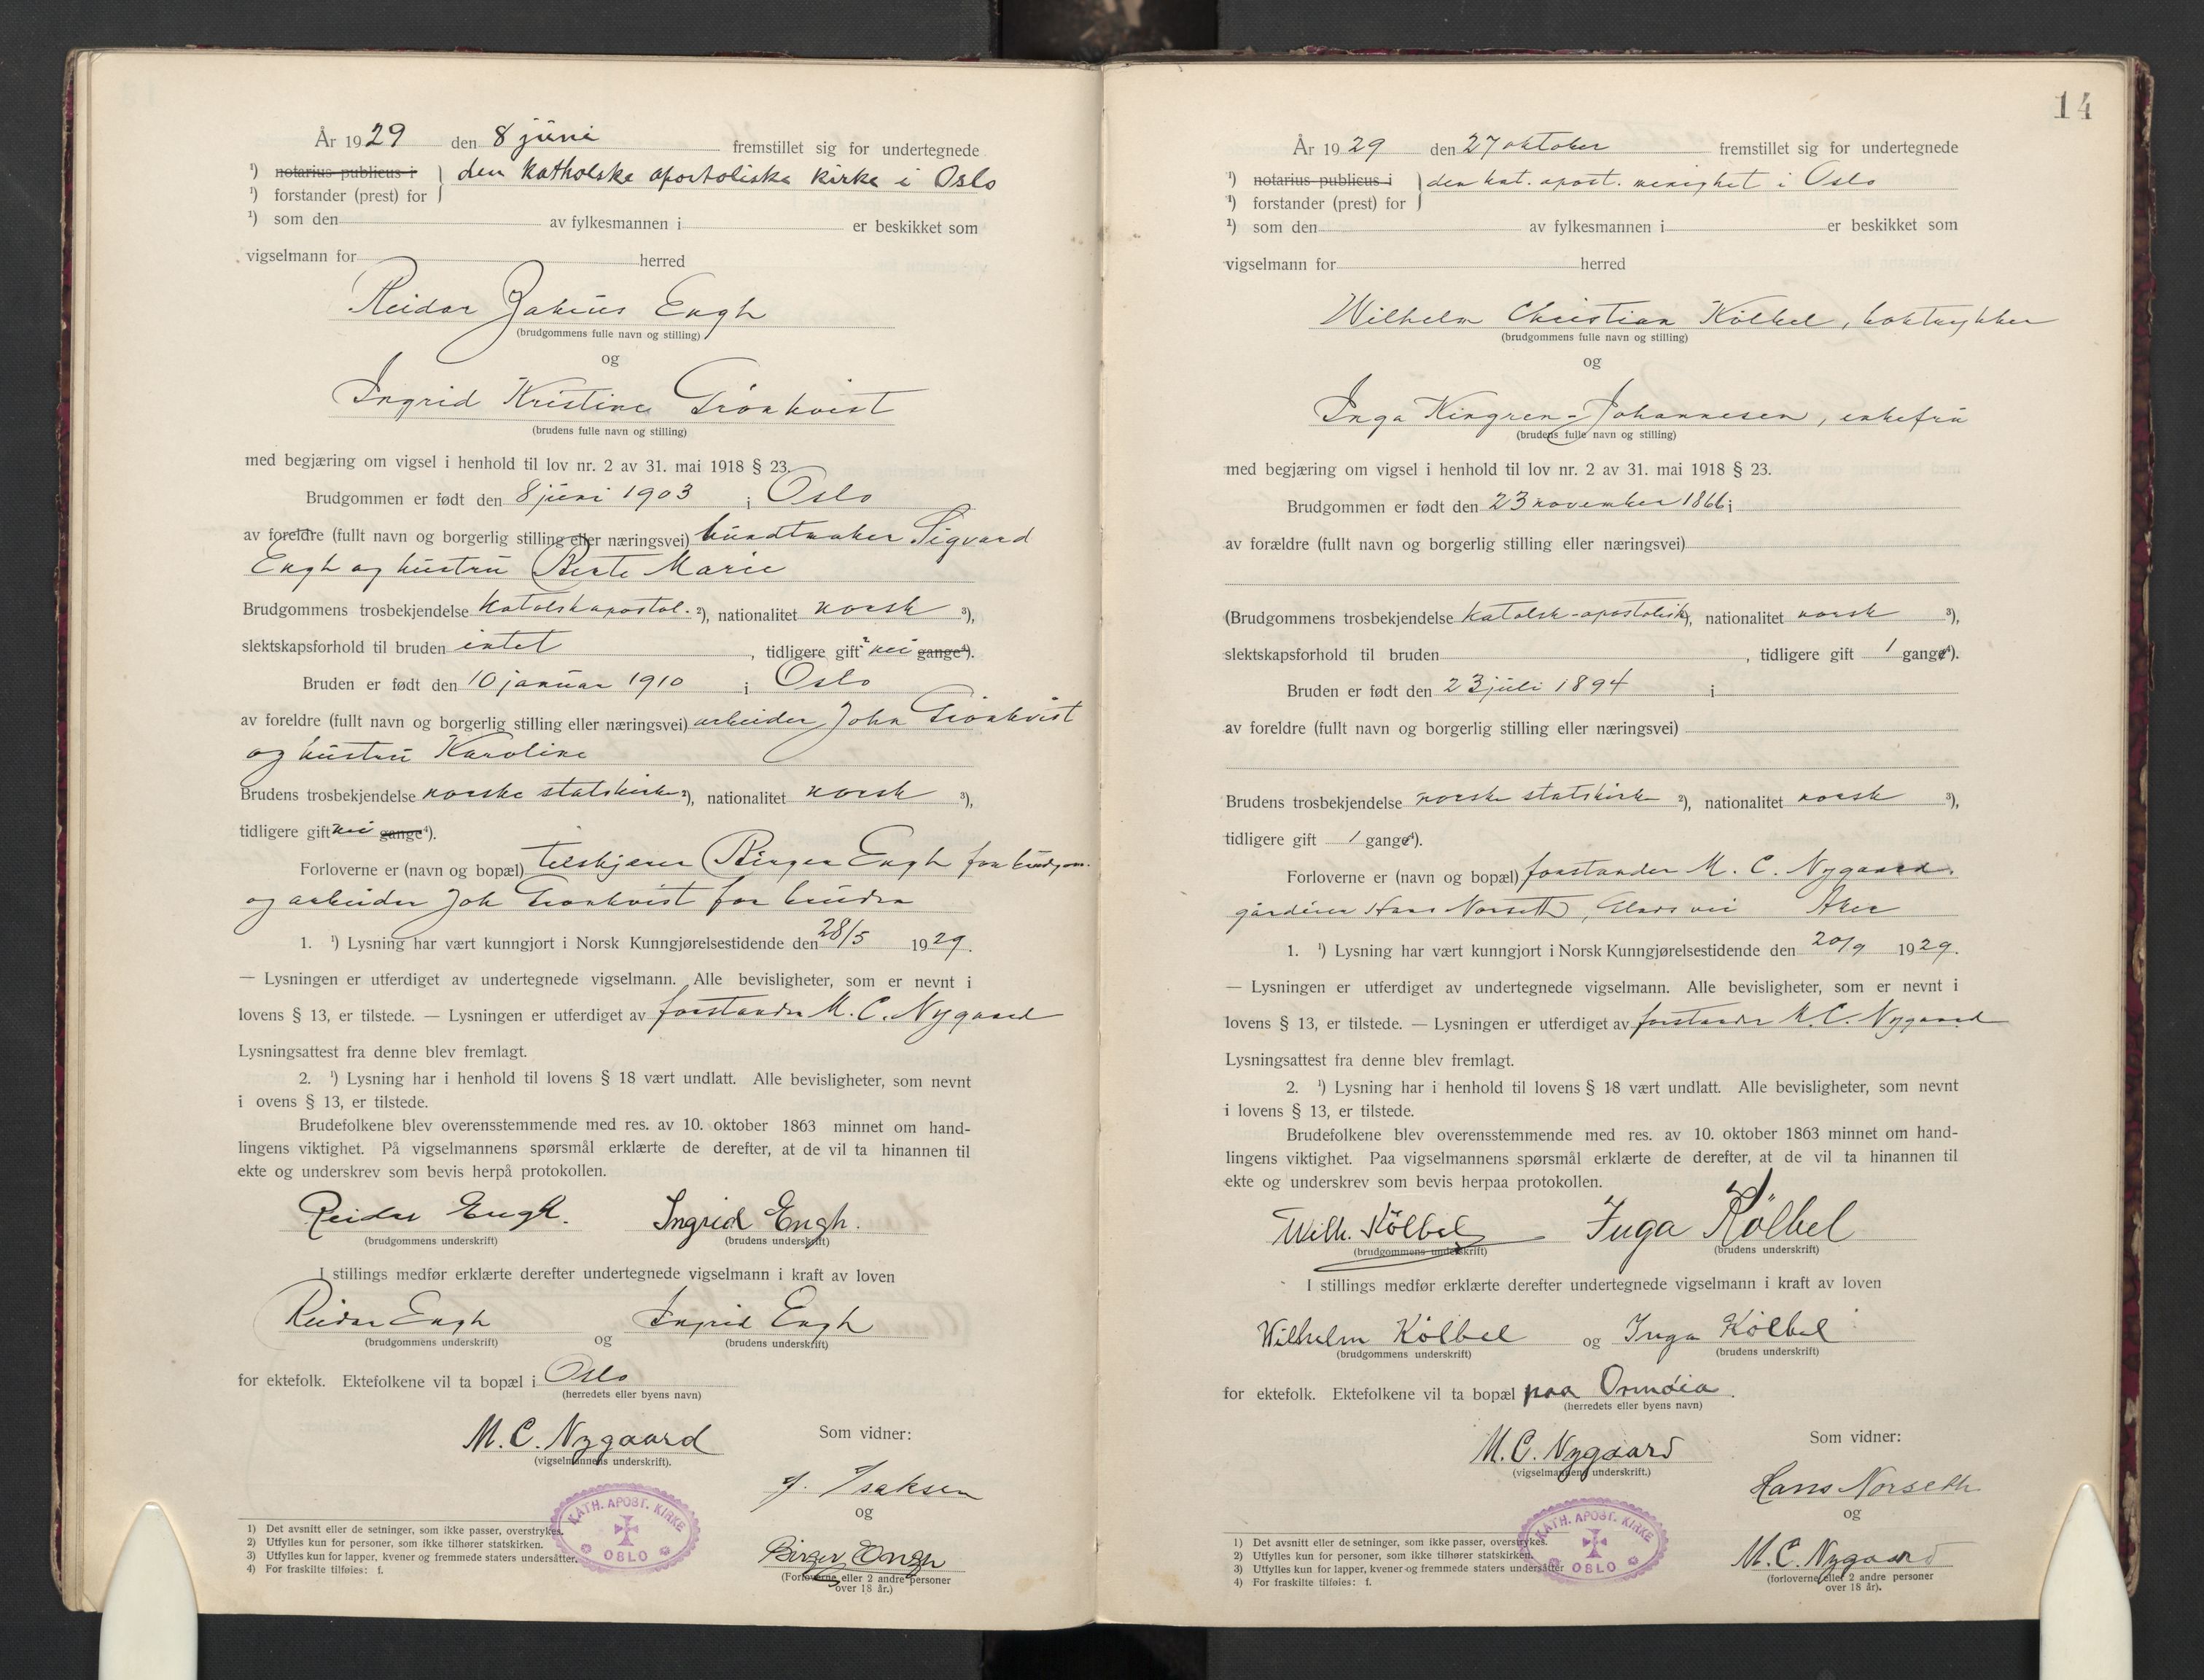 År 1929 den 8 juni fremstillet sig for undertegnede
¹) notarius publicus i } den katholske apostoliske kirke i Oslo
¹) forstander (prest) for
¹) som den av fylkesmannen i er beskikket som
vigselmann for herred
Reidar Engh
(brudgommens fulle navn og stilling)
og
Ingrid Kristine Grönkvist
(brudens fulle navn og stilling)
med begjæring om vigsel i henhold til lov nr. 2 av 31. mai 1918 § 23.
Brudgommen er født den 8 juni 1903 i Oslo
av foreldre (fullt navn og borgerlig stilling eller næringsvei) Sigvard
Engh og hustru Berte Marie
Brudgommens trosbekjendelse Katolskapostol. ²), nationalitet norsk ³),
slektskapsforhold til bruden intet , tidligere gift nei gange⁴).
Bruden er født den 10 januar 1910 i Oslo
av foreldre (fullt navn og borgerlig stilling eller næringsvei) arbeider John Grönkvist
og hustru Karoline
Brudens trosbekjendelse norske statskirke ²), nationalitet norsk ³),
tidligere gift nei gange⁴).
Forloverne er (navn og bopæl) Birger Engh for brudgom.
og arbeider Joh Grönkvist for bruden
1. ¹) Lysning har vært kunngjort i Norsk Kunngjørelsestidende den 28/5 1929.
— Lysningen er utferdiget av undertegnede vigselmann. Alle bevisligheter, som er nevnt i
lovens § 13, er tilstede. — Lysningen er utferdiget av forstander M. C. Nygaard
Lysningsattest fra denne blev fremlagt.
2. ¹) Lysning har i henhold til lovens § 18 vært undlatt. Alle bevisligheter, som nevnt
i ovens § 13, er tilstede.
Brudefolkene blev overensstemmende med res. av 10. oktober 1863 minnet om hand-
lingens viktighet. På vigselmannens spørsmål erklærte de derefter, at de vil ta hinannen til
ekte og underskrev som bevis herpå protokollen.
Reidar Engh. Ingrid Engh.
(brudgommens underskrift) (brudens underskrift)
I stillings medfør erklærte derefter undertegnede vigselmann i kraft av loven
Reidar Engh og Ingrid Engh
(brudgommens underskrift) (brudens underskrift)
for ektefolk. Ektefolkene vil ta bopæl i Oslo
(herredets eller byens navn)
M. C. Nygaard
(vigselmannens underskrift).
Som vidner:
J. Isaksen
og
Birger Engh
(Forloverne eller 2 andre personer
over 18 år.)
KATH. APOST. KIRKE
OSLO
1) Det avsnitt eller de setninger, som ikke passer, overstrykes.
2) Utfylles kun for personer, som ikke tilhører statskirken.
3) Utfylles kun for lapper, kvener og fremmede staters undersåtter.
4) For fraskilte tilføies: f.
14
År 1929 den 27 oktober fremstillet sig for undertegnede
¹) notarius publicus i } den kat. apost. menighet i Oslo
¹) forstander (prest) for
¹) som den av fylkesmannen i er beskikket som
vigselmann for herred
Wilhelm Christian Kölbel, boktrykker
(brudgommens fulle navn og stilling)
og
Inga Johannesen, enkefru
(brudens fulle navn og stilling)
med begjæring om vigsel i henhold til lov nr. 2 av 31. mai 1918 § 23.
Brudgommen er født den 23 november 1866 i
av forældre (fullt navn og borgerlig stilling eller næringsvei)
(Brudgommens trosbekjendelse Katolsk-apostolisk ), nationalitet norsk ³),
slektskapsforhold til bruden , tidligere gift 1 gange⁴).
Bruden er født den 23 juli 1894 i
av foreldre (fullt navn og borgerlig stilling eller næringsvei)
Brudens trosbekjendelse norske statskirke ²), nationalitet norsk ³),
tidligere gift 1 gange⁴).
Forloverne er (navn og bopæl) forstander M. C. Nygaard.
Hans Norseth, Aker
1. ¹) Lysning har vært kunngjort i Norsk Kunngjørelsestidende den 20/9 1929.
— Lysningen er utferdiget av undertegnede vigselmann. Alle bevisligheter, som er nevnt i
lovens § 13, er tilstede. — Lysningen er utferdiget av forstander M. C. Nygaard
Lysningsattest fra denne blev fremlagt.
2. ¹) Lysning har i henhold til lovens § 18 vært undlatt. Alle bevisligheter, som nevnt
i lovens § 13, er tilstede.
Brudefolkene blev overensstemmende med res. av 10. oktober 1863 minnet om hand-
lingens viktighet. Paa vigselmannens spørsmål erklærte de derefter, at de vil ta hinannen til
ekte og underskrev som bevis herpaa protokollen.
Wilh. Kölbel Inga Kölbel
(brudgommens underskrift) (brudens underskrift)
I stillings medfør erklærte derefter undertegnede vigselmann i kraft av loven
Wilhelm Kölbel og Inga Kölbel
(brudgommens underskrift) (brudens underskrift)
for ektefolk. Ektefolkene vil ta bopæl paa Ormöia.
(herredets eller byens navn)
M. C. Nygaard
(vigselmannens underskrift.)
Som vidner:
Hans Norseth
og
M. C. Nygaard
(forloverne eller 2 andre personer
over 18 år).
KATH. APOST. KIRKE
OSLO
1) Det avsnitt eller de setninger, som ikke passer, overstrykes.
2) Utfylles kun for personer, som ikke tilhører statskirken.
3) Utfylles kun for lapper, kvener og fremmede staters undersåtter
4) For fraskilte tilføies: f.